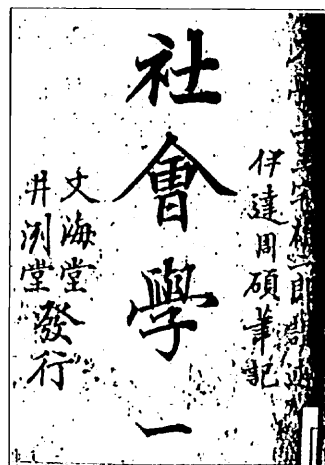 伊達周碩筆記
社會學一
文海堂
井洌堂
發行